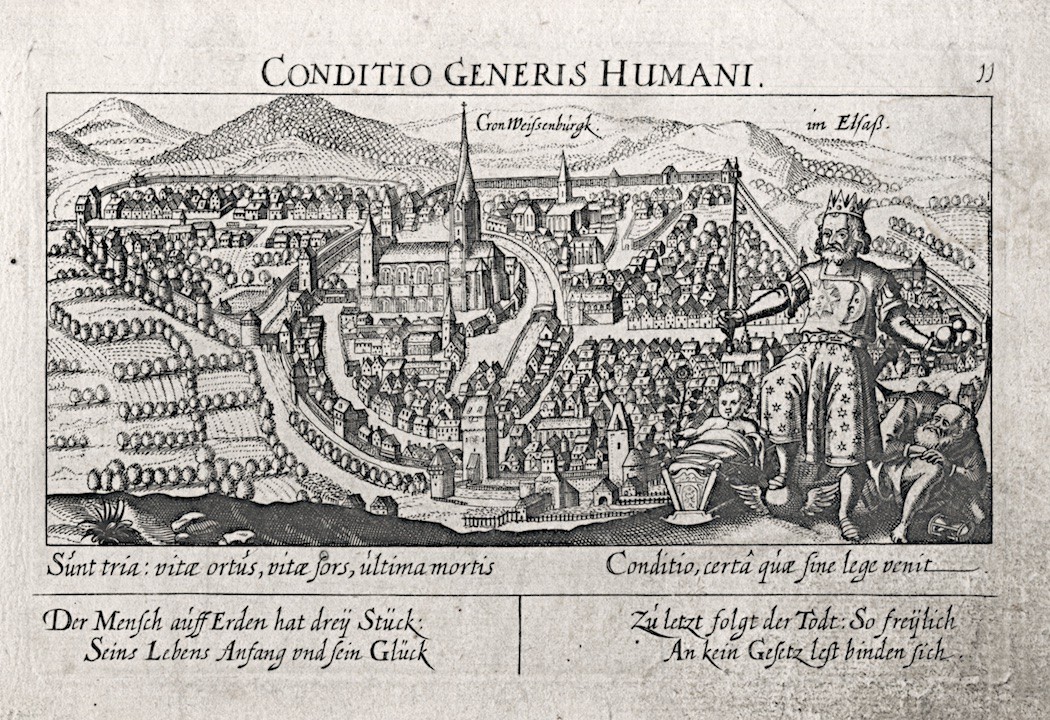 CONDITIO GENERIS HUMANI.
11
Cron Weiſsenburgk.
im Elſaß.
Sunt tria: vitæ ortus, vitæ ſors, ultima mortis
Conditio, certâ quæ ſine lege venit
Der Menſch auff Erden hat dreÿ Stück:
Seins Lebens Anfang vnd ſein Glück
Zu letzt folgt der Todt: So freÿlich
An kein Geſetz leſt binden ſich.